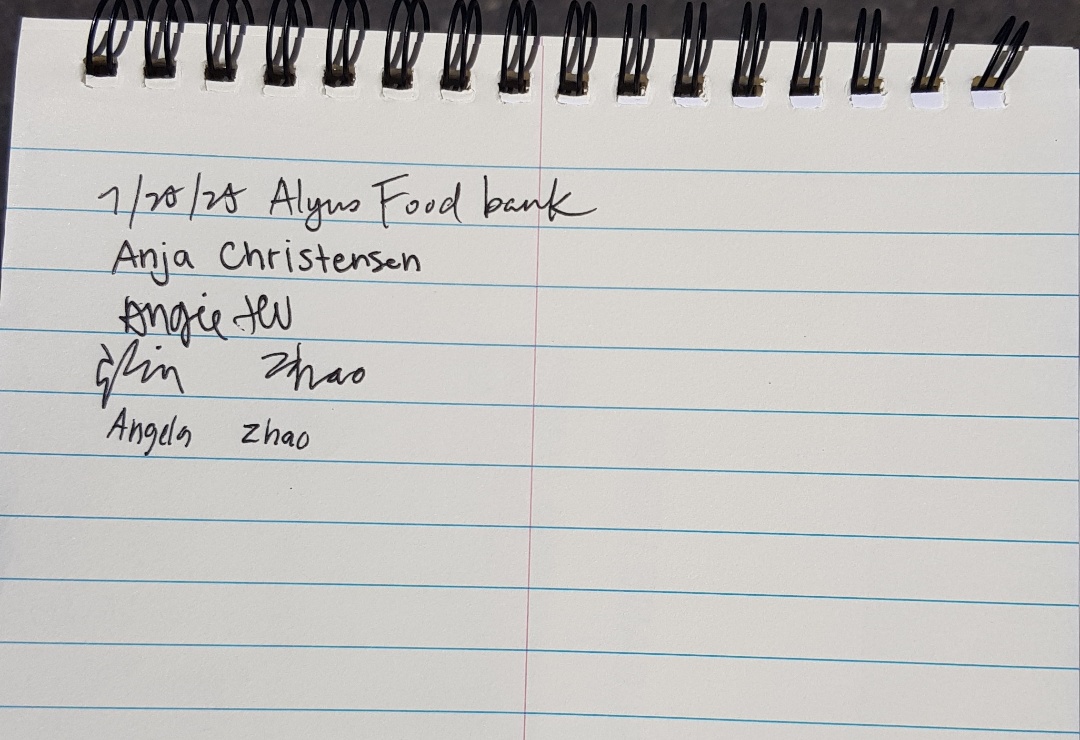 7/28/25 Alyus Food bank
Anja Christensen
Angie
Zhao
Angela Zhao